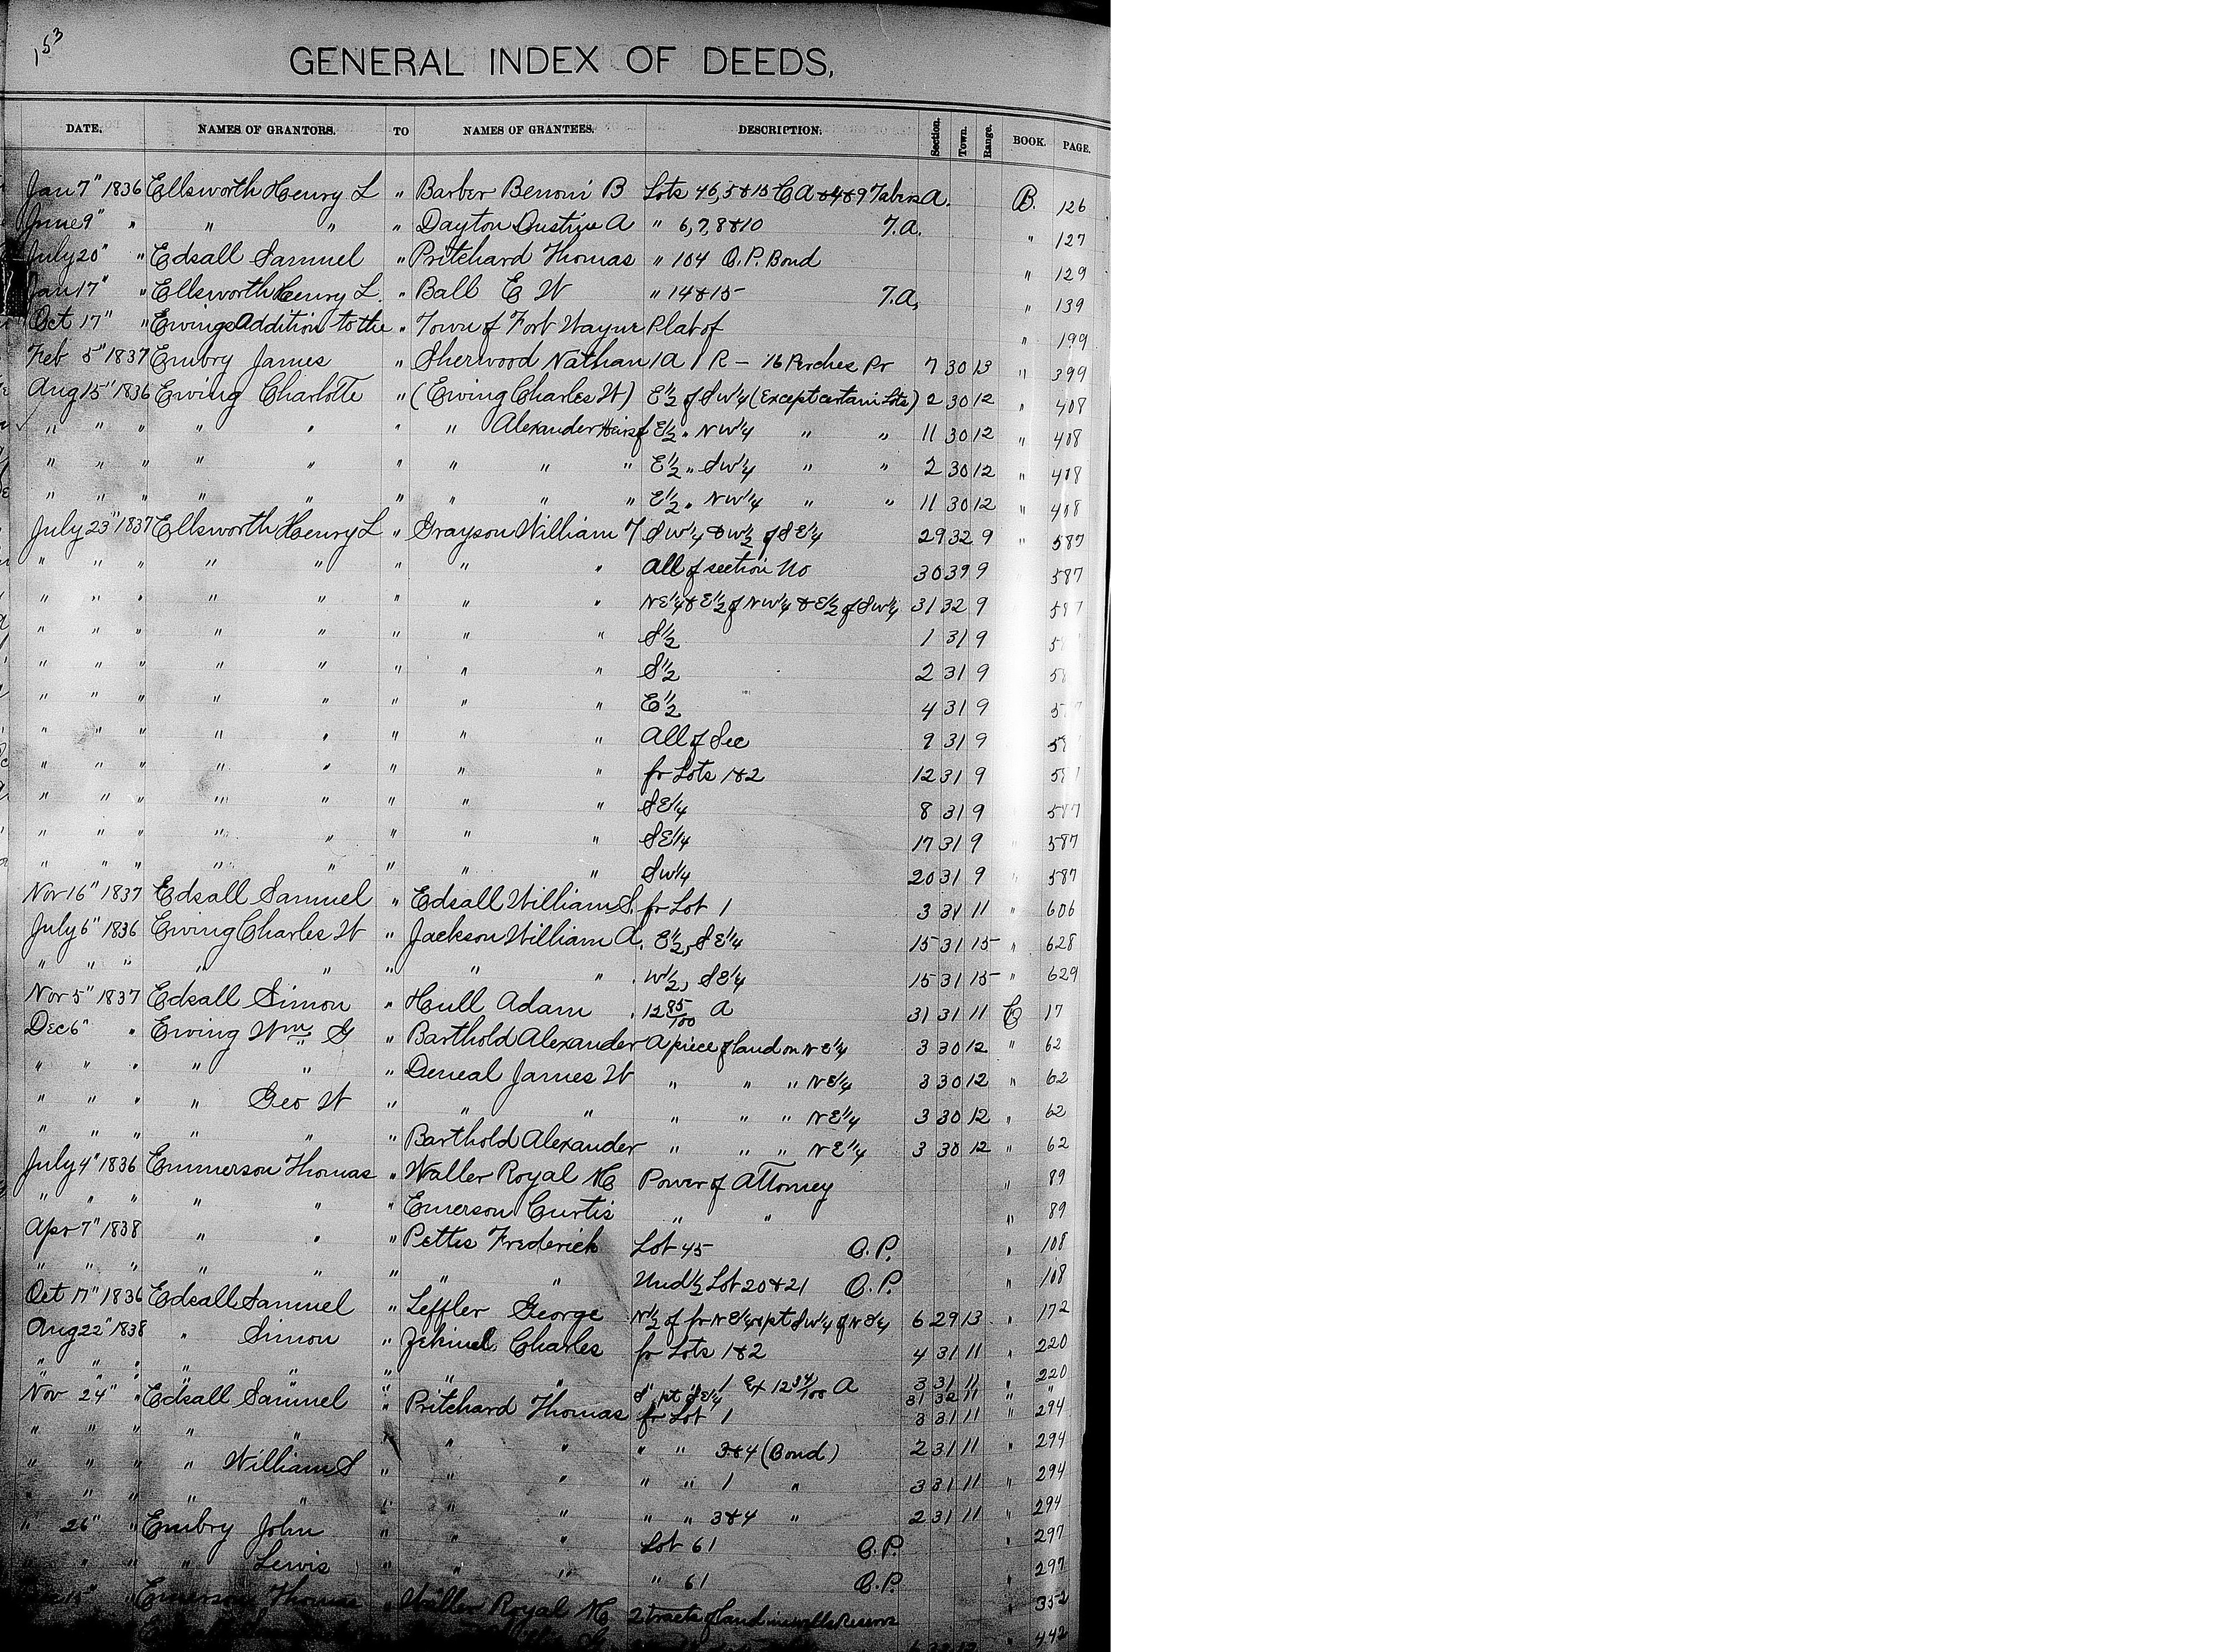 153
GENERAL INDEX OF DEEDS,
DATE. NAMES OF GRANTORS. TO NAMES OF GRANTEES. DESCRIPTION. Section. Town. Range. BOOK. PAGE.
Jan 7" 1836 Ellsworth Henry L " Barber Benoni B Lots 45, 5 & 15 C A & 4 & 9 Tabers A. B. 126
June 9" " " " " Dayton A " 6, 7, 8 & 10 T. A. " 127
July 20" " Edsall Samuel " Pritchard Thomas " 104 O. P. Bond " 129
Jan 17" " Ellsworth Henry L. " Ball E W " 14 & 15 T. A, " 139
Oct 17" " Ewings Addition to the " Town of Fort Wayne Plat of " 199
Feb 5" 1837 Embry James " Sherwood Nathan 1 A 1 R – 16 Perches Pr 7 30 13 " 399
Aug 15" 1836 Ewing Charlotte " (Ewing Charles W) E 1/2 of SW 1/4 (Except certain Lots) 2 30 12 " 408
" " " " " " Alexander Heirs of E 1/2 " NW 1/4 " " 11 30 12 " 408
" " " " " " " " " E 1/2 " SW 1/4 " " 2 30 12 " 408
" " " " " " " " " E 1/2 " NW 1/4 " " 11 30 12 " 408
July 23" 1837 Ellsworth Henry L " Grayson William T SW 1/4 & W 1/2 of SE 1/4 29 32 9 " 587
" " " " " " " " All of section No 30 39 9 587
" " " " " " " " NE 1/4 & E 1/2 of NW 1/4 & E 1/2 of SW 1/4 31 32 9 587
" " " " " " " " S 1/2 1 31 9
" " " " " " " " S 1/2 2 31 9
" " " " " " " " E 1/2 4 31 9
" " " " " " " " All of Sec 9 31 9
" " " " " " " " fr Lots 1 & 2 12 31 9
" " " " " " " " SE 1/4 8 31 9 587
" " " " " " " " SE 1/4 17 31 9 587
" " " " " " " " SW 1/4 20 31 9 " 587
Nov 16" 1837 Edsall Samuel " Edsall William S. fr Lot 1 3 31 11 " 606
July 6" 1836 Ewing Charles W " Jackson William A. E 1/2, SE 1/4 15 31 15 " 628
" " " " " " " " W 1/2, SE 1/4 15 31 15 " 629
Nov 5" 1837 Edsall Simon " Hull Adam 12 85/100 A 31 31 11 C 17
Dec 6" " Ewing Wm G " Barthold Alexander A piece of land on NE 1/4 3 30 12 " 62
" " " " " " Deneal James W " " " NE 1/4 3 30 12 " 62
" " " " Geo W " " " " " " NE 1/4 3 30 12 " 62
" " " " " " Barthold Alexander " " " NE 1/4 3 30 12 " 62
July 4" 1836 Emmerson Thomas " Waller Royal H Power of Attorney " 89
" " " " " " Emerson Curtis " " " 89
Apr 7" 1838 " " " Pettis Frederick Lot 45 O. P. " 108
" " " " " " " " Und 1/2 Lot 20 & 21 O. P. " 108
Oct 17" 1836 Edsall Samuel " Leffler George N 1/2 of fr NE 1/4 & pt SW 1/4 of NE 1/4 6 29 13 " 172
Aug 22" 1838 " Simon " Charles fr Lots 1 & 2 4 31 11 " 220
" " " " " " " " " " 1 Ex 12 34/100 A 3 31 11 " 220
" " " " " " S pt SE 1/4 31 32 11 " "
Nov 24" " Edsall Samuel " Pritchard Thomas fr Lot 1 3 31 11 " 294
" " " " " " " " " " 3 & 4 (Bond) 2 31 11 " 294
" " " " William S " " " " " 1 " 3 31 11 " 294
" " " " " " " " " " 3 & 4 " 2 31 11 " 294
" 26" " Embry John " " " Lot 61 O. P. " 297
" " " " Lewis " " " " 61 O. P. " 297
15" " Emerson Thomas " Waller Royal H 2 tracts of land in wells Reserve " 352
" 442